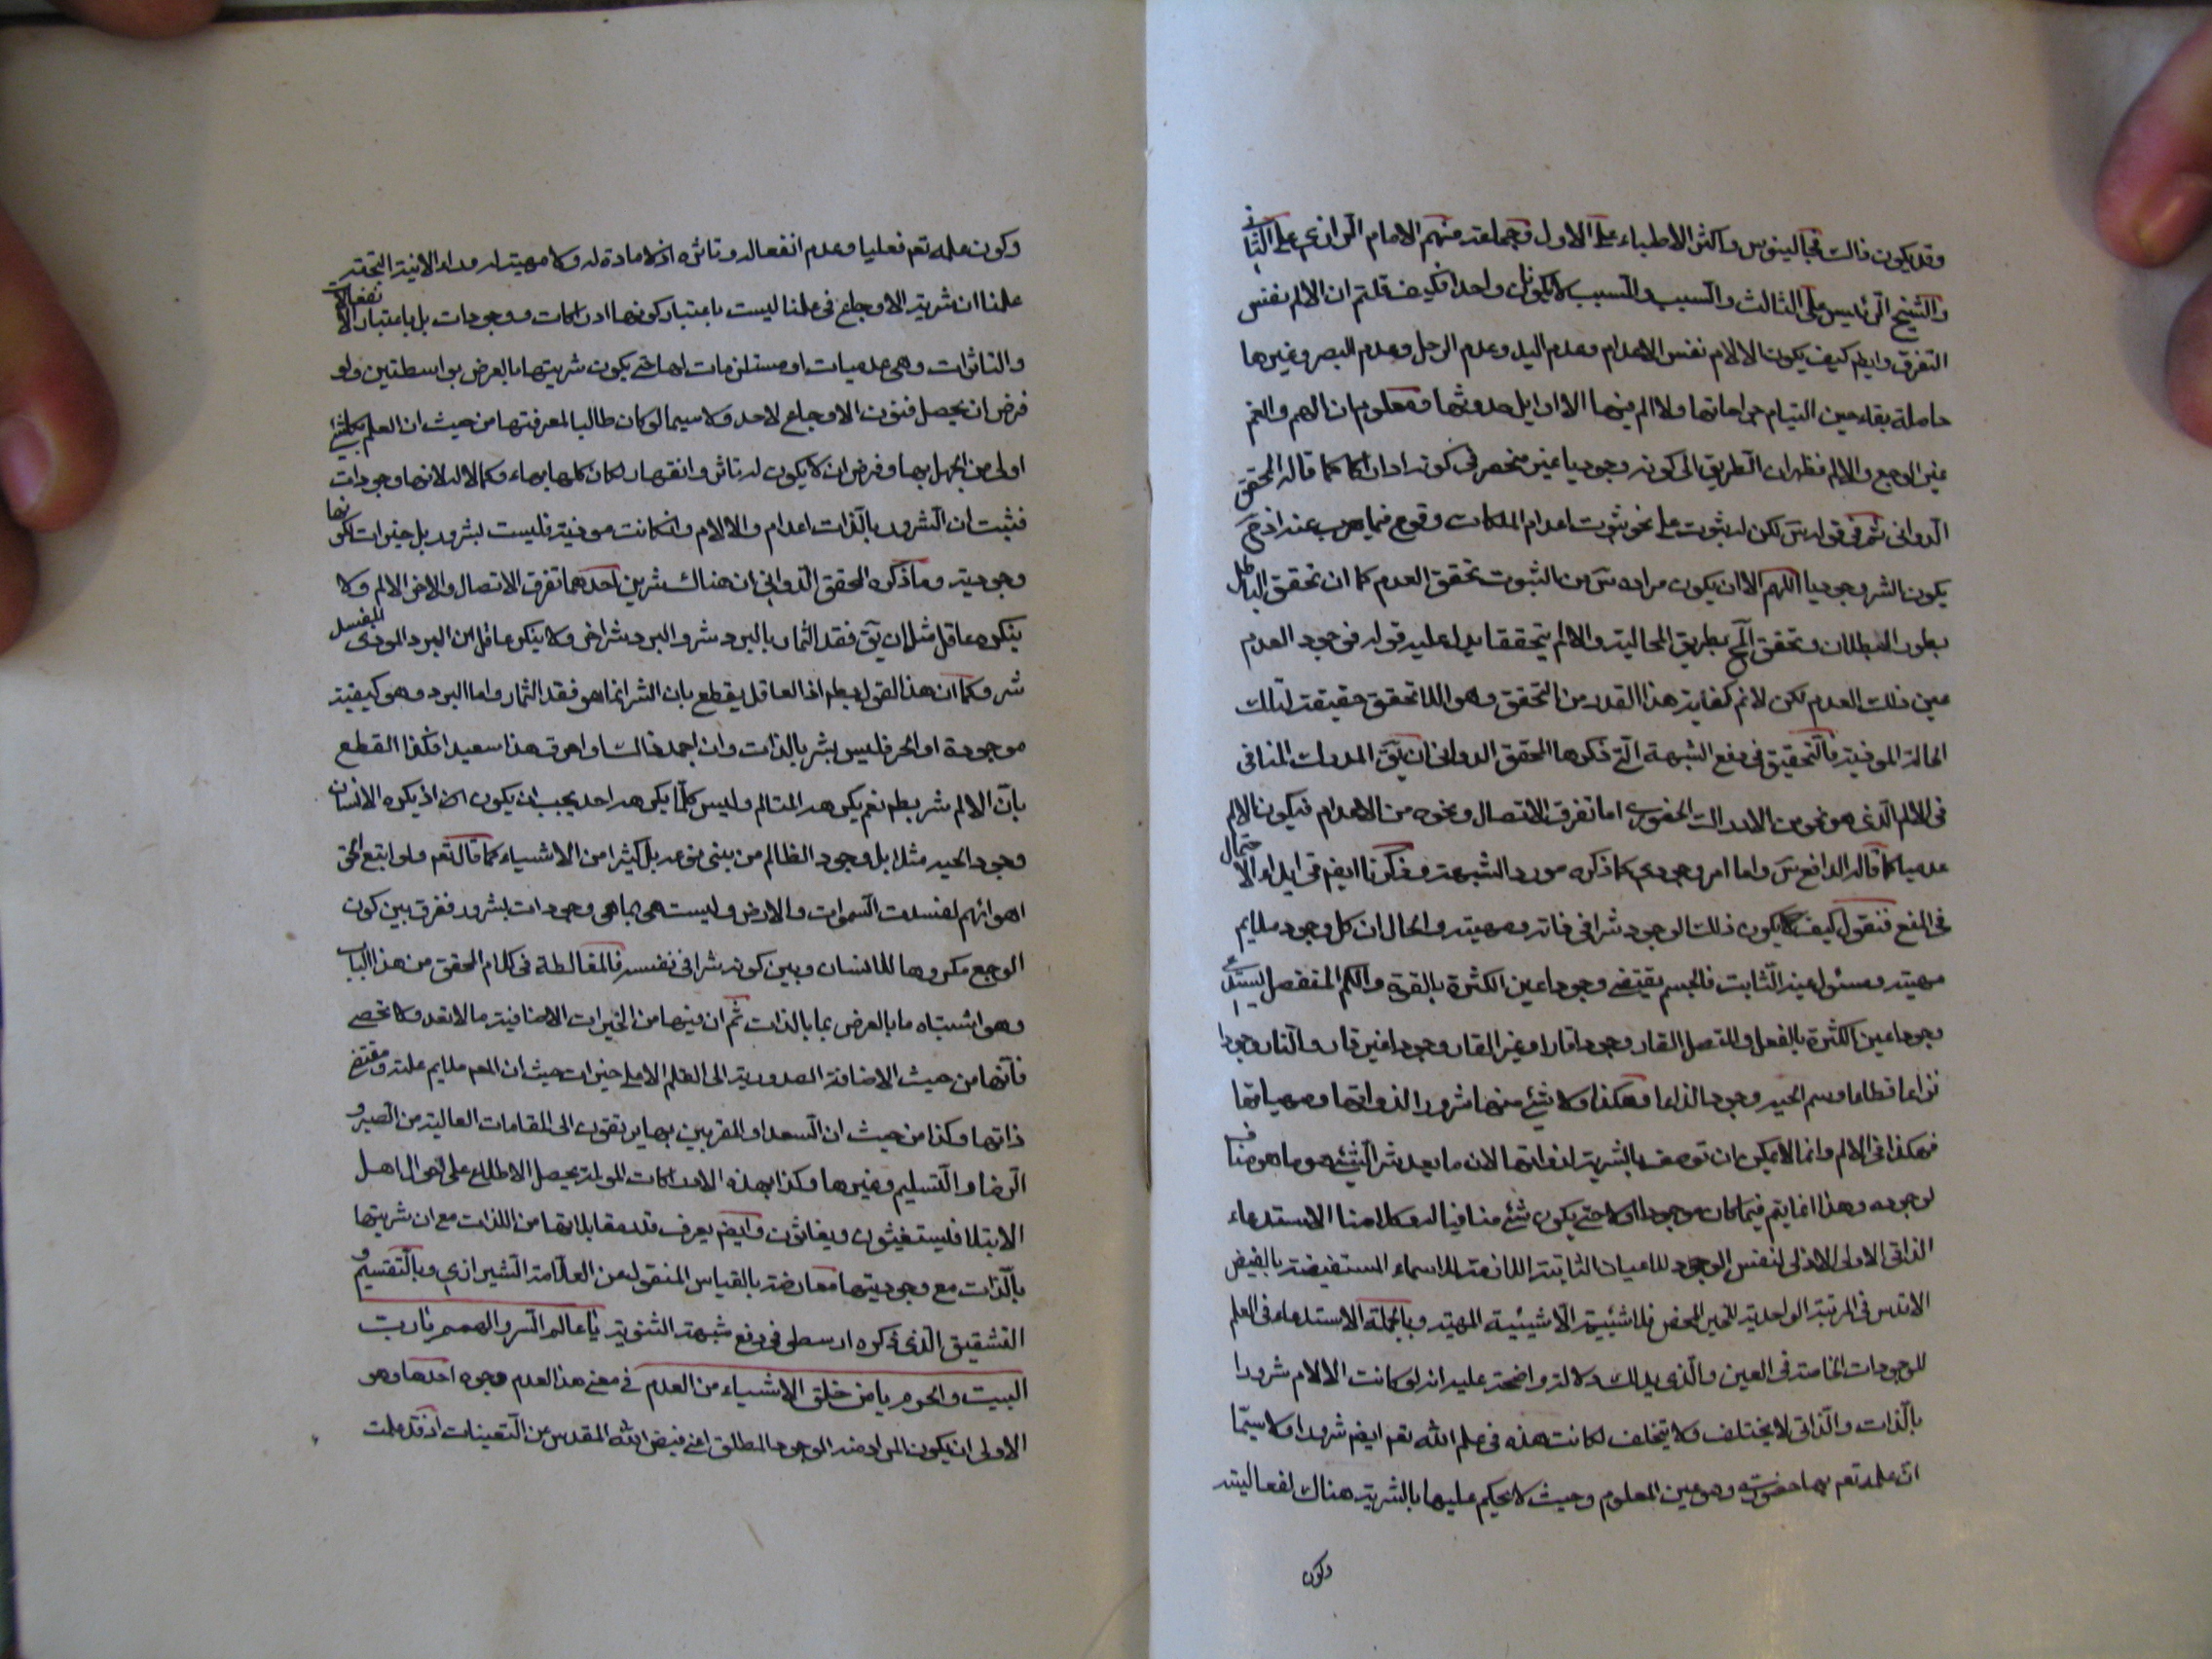 وقد يكون ذالك فجالينوس واكثر الاطباء على الاول وجماعة منهم الامام الرازى على الثانى
والشيخ الرئيس على الثالث والسبب والمسبب لا يكونان واحدا فكيف قلتم ان الالم نفس
التفرق وايض كيف يكون الالام نفس الاعدام وعدم اليد وعدم الرجل وعدم البصر وغيرها
حاصلة بقاء حين التيام جراحاتها ولا الم فيها الا اوايل حدوثها ومعلوم ان الهم والغم
غير الوجع والالم فظهر ان الطريق الى كونه وجوديا غير منحصر فى كونه ادراكا كما قاله المحقق
الدوانى ثم فى قوله س لكن له ثبوت على نحو ثبوت اعدام الملكات وقوع فيما هرب عنه اذ ح
يكون الشر وجوديا اللهم الا ان يكون مراده س من الثبوت تحقق العدم كما ان تحقق الباطل
بطور البطلان وتحقق المح بطريق المحالية والالم يتحققا يدل عليه قوله فوجود العدم
عين ذلك العدم لكن لا نم كفاية هذا القدر من التحقق وهو اللا تحقق حقيقة لتلك
الحالة الموذية فالتحقيق فى دفع الشبهة التى ذكرها المحقق الدوانى ان يق المدرك المنافى
فى الالم الذى هو نحو من الادراك الحضورى اما تفرق الاتصال ونحوه من الاعدام فيكون الالم
عدميا كما قاله الدافع س واما امر وجودى كما ذكره مورد الشبهة وذكرنا ايض فى ابداء الاحتمال
فى المنع فنقول كيف يكون ذلك الوجود شرا فى ذاته ومهيته والحال ان كل وجود ملايم
مهيته ومسئول عينه الثابت فالجسم يقتضى وجودا عين الكثرة بالقوة والكم المنفصل يستدعى
وجودا عين الكثرة بالفعل والمتصل القار وجودا قارا وغير القار وجودا غير قار والنار وجودا
نزاعا قطاعا وسم الحية وجودا لذاعا وهكذا ولا شئ منها شرورا لذواتها ومهياتها
فهكذا فى الالم وانما لا يمكن ان توصف بالشرية لذواتها لان ما يعد شر الشئ هو ما هو مناف
لوجوده وهذا انما يتم فيما كان موجودا اولا حتى يكون شئ منافيا له وكلامنا الاستدعاء
الذاتى الاولى الازلى لنفس الوجود للاعيان الثابتة اللازمة للاسماء المستفيضة بالفيض
الاقدس فى المرتبة الواحدية للخير المحض فلا شيئية الا شيئية المهية وبالجملة الاستدعاء فى العلم
للوجودات الخاصة فى العين والذى يدلك دلالة واضحة عليه انه لو كانت الالام شرورا
بالذات والذاتى لا يختلف ولا يتخلف لكانت هذه فى علم الله تعم ايض شرورا ولا سيما
ان علمه تعم بها حضورى وهو عين المعلوم وحيث لا يحكم عليها بالشرية هناك لفعاليته
وكون
وكون علمه تعم فعليا وعدم انفعاله وتاثره اذ لا مادة له ولا مهية له وراء الانية البحتة
علمنا ان شرية الاوجاع فى علمنا ليست باعتبار كونها ادراكات ووجودات بل باعتبار الانفعالات
والتاثرات وهى عدميات او مستلزمات لها حتى يكون شريتها بالعرض بواسطتين ولو
فرض ان يحصل فنون الاوجاع لاحد ولا سيما لو كان طالبا لمعرفتها من حيث ان العلم بكل شئ
اولى من الجهل بها وفرض ان لا يكون له تاثر وانقهار لكان كلها بهاء وكمالا له لانها وجودات
فثبت ان الشرور بالذات اعدام والالام وان كانت موذية فليست بشرور بل خيرات لكونها
وجودية وما ذكره المحقق الدوانى ان هناك شرين احدهما تفرق الاتصال والاخر الالم ولا
ينكره عاقل مثل ان يق فقد الثمار بالبرد شر والبرد شر اخر ولا ينكر عاقل ان البرد المودى المفسد
شر وكما ان هذا القول بط اذ العاقل يقطع بان الشر انما هو فقد الثمار واما البرد وهو كيفية
موجودة او الحر فليس بشر بالذات وان اجمد ذالك واحرق هذا سعيدا فكذا القطع
بان الالم شر بط نعم يكرهه المتالم وليس كلما يكرهه احد يجب ان يكون اذ يكره الانسان
وجود الحية مثلا بل وجود الظالم من بنى نوعه بل كثيرا من الاشياء كما قال تعم ولو اتبع الحق
اهوائهم لفسدت السموات والارض وليست هى بما هى وجودات بشرور ففرق بين كون
الوجع مكروها للانسان وبين كونه شرا فى نفسه فالمغالطة فى كلام المحقق من هذا الباب
وهو اشتباه ما بالعرض بما بالذات ثم ان فيها من الخيرات الاضافية ما لا تعد ولا تحصى
فانها من حيث الاضافة الصدورية الى القلم الاعلى خيرات حيث ان المعم ملايم علته ومقتضى
ذاتها وكذا من حيث ان السعداء والمقربين بها يرتقون الى المقامات العالية من الصبر و
الرضا والتسليم وغيرها وكذا بهذه الادراكات المولمة يحصل الاطلاع على احوال اهل
الابتلا فليستغيثون ويغاثون وايض يعرف قدر مقابلاتها من اللذات مع ان شريتها
بالذات مع وجوديتها معارضة بالقياس المنقول عن العلامة الشيرازى وبالتقسيم و
التشقيق الذى ذكره ارسطو فى دفع شبهة الثنوية يا عالم السر والهمم يا رب
البيت والحرم يا من خلق الاشياء من العدم فى معنى هذا العدم وجوه احدها وهو
الاولى ان يكون المراد منه الوجود المطلق اعنى فيض الله المقدس عن التعينات اذ قد علمت